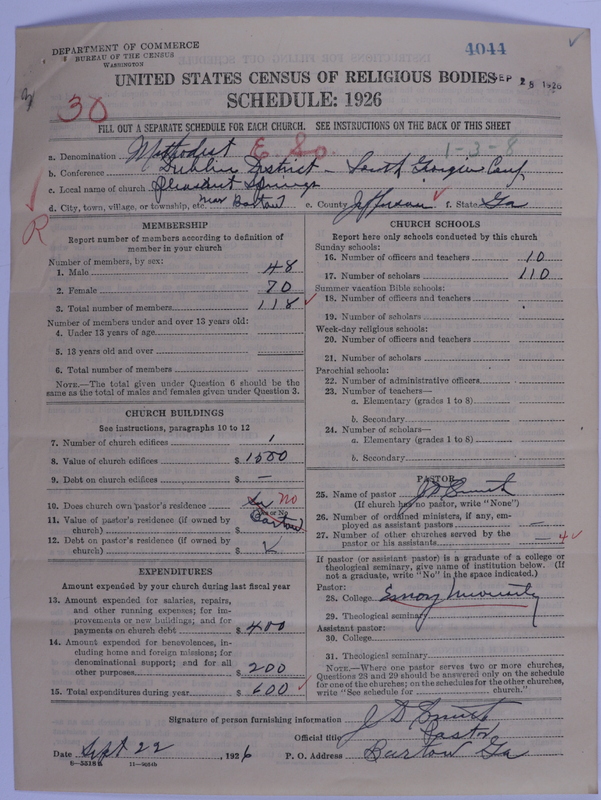 DEPARTMENT OF COMMERCE
BUREAU OF THE CENSUS
WASHINGTON
4044
UNITED STATES CENSUS OF RELIGIOUS BODIES
SEP 25 1926
SCHEDULE: 1926
30
FILL OUT A SEPARATE SCHEDULE FOR EACH CHURCH. SEE INSTRUCTIONS ON THE BACK OF THIS SHEET
1-3-8
a. Denomination Methodist E So.
b. Conference Dublin District - South Georgia Conf
c. Local name of church Pleasant Springs
d. City, town, village, or township, etc. near Bartow e. County Jefferson f. State Ga
R
MEMBERSHIP
Report number of members according to definition of member in your church
Number of members, by sex:
1. Male 48
2. Female 70
3. Total number of members 118
Number of members under and over 13 years old:
4. Under 13 years of age
5. 13 years old and over
6. Total number of members
NOTE.—The total given under Question 6 should be the same as the total of males and females given under Question 3.
CHURCH BUILDINGS
See instructions, paragraphs 10 to 12
7. Number of church edifices 1
8. Value of church edifices $ 1500
9. Debt on church edifices $ —
10. Does church own pastor's residence no
Yes or No
11. Value of pastor's residence (if owned by
church) $ Bartow
12. Debt on pastor's residence (if owned by
church) $
EXPENDITURES
Amount expended by your church during last fiscal year
13. Amount expended for salaries, repairs,
and other running expenses; for im-
provements or new buildings; and for
payments on church debt $ 400
14. Amount expended for benevolences, in-
cluding home and foreign missions; for
denominational support; and for all
other purposes $ 200
15. Total expenditures during year $ 600
CHURCH SCHOOLS
Report here only schools conducted by this church
Sunday schools:
16. Number of officers and teachers 10
17. Number of scholars 110
Summer vacation Bible schools:
18. Number of officers and teachers
19. Number of scholars
Week-day religious schools:
20. Number of officers and teachers
21. Number of scholars
Parochial schools:
22. Number of administrative officers
23. Number of teachers—
a. Elementary (grades 1 to 8)
b. Secondary
24. Number of scholars—
a. Elementary (grades 1 to 8)
b. Secondary
PASTOR
25. Name of pastor J D Smith
(If church has no pastor, write "None")
26. Number of ordained ministers, if any, em-
ployed as assistant pastors —
27. Number of other churches served by the
pastor or his assistants — 4
If pastor (or assistant pastor) is a graduate of a college or
theological seminary, give name of institution below. (If
not a graduate, write "No" in the space indicated.)
Pastor:
28. College Emory University
29. Theological seminary
Assistant pastor:
30. College
31. Theological seminary
NOTE.—Where one pastor serves two or more churches,
Questions 28 and 29 should be answered only on the schedule
for one of the churches; on the schedules for the other churches,
write "See schedule for church."
Signature of person furnishing information J D Smith
Official title Pastor
Date Sept 22, 1926 P. O. Address Bartow Ga
11-9084b